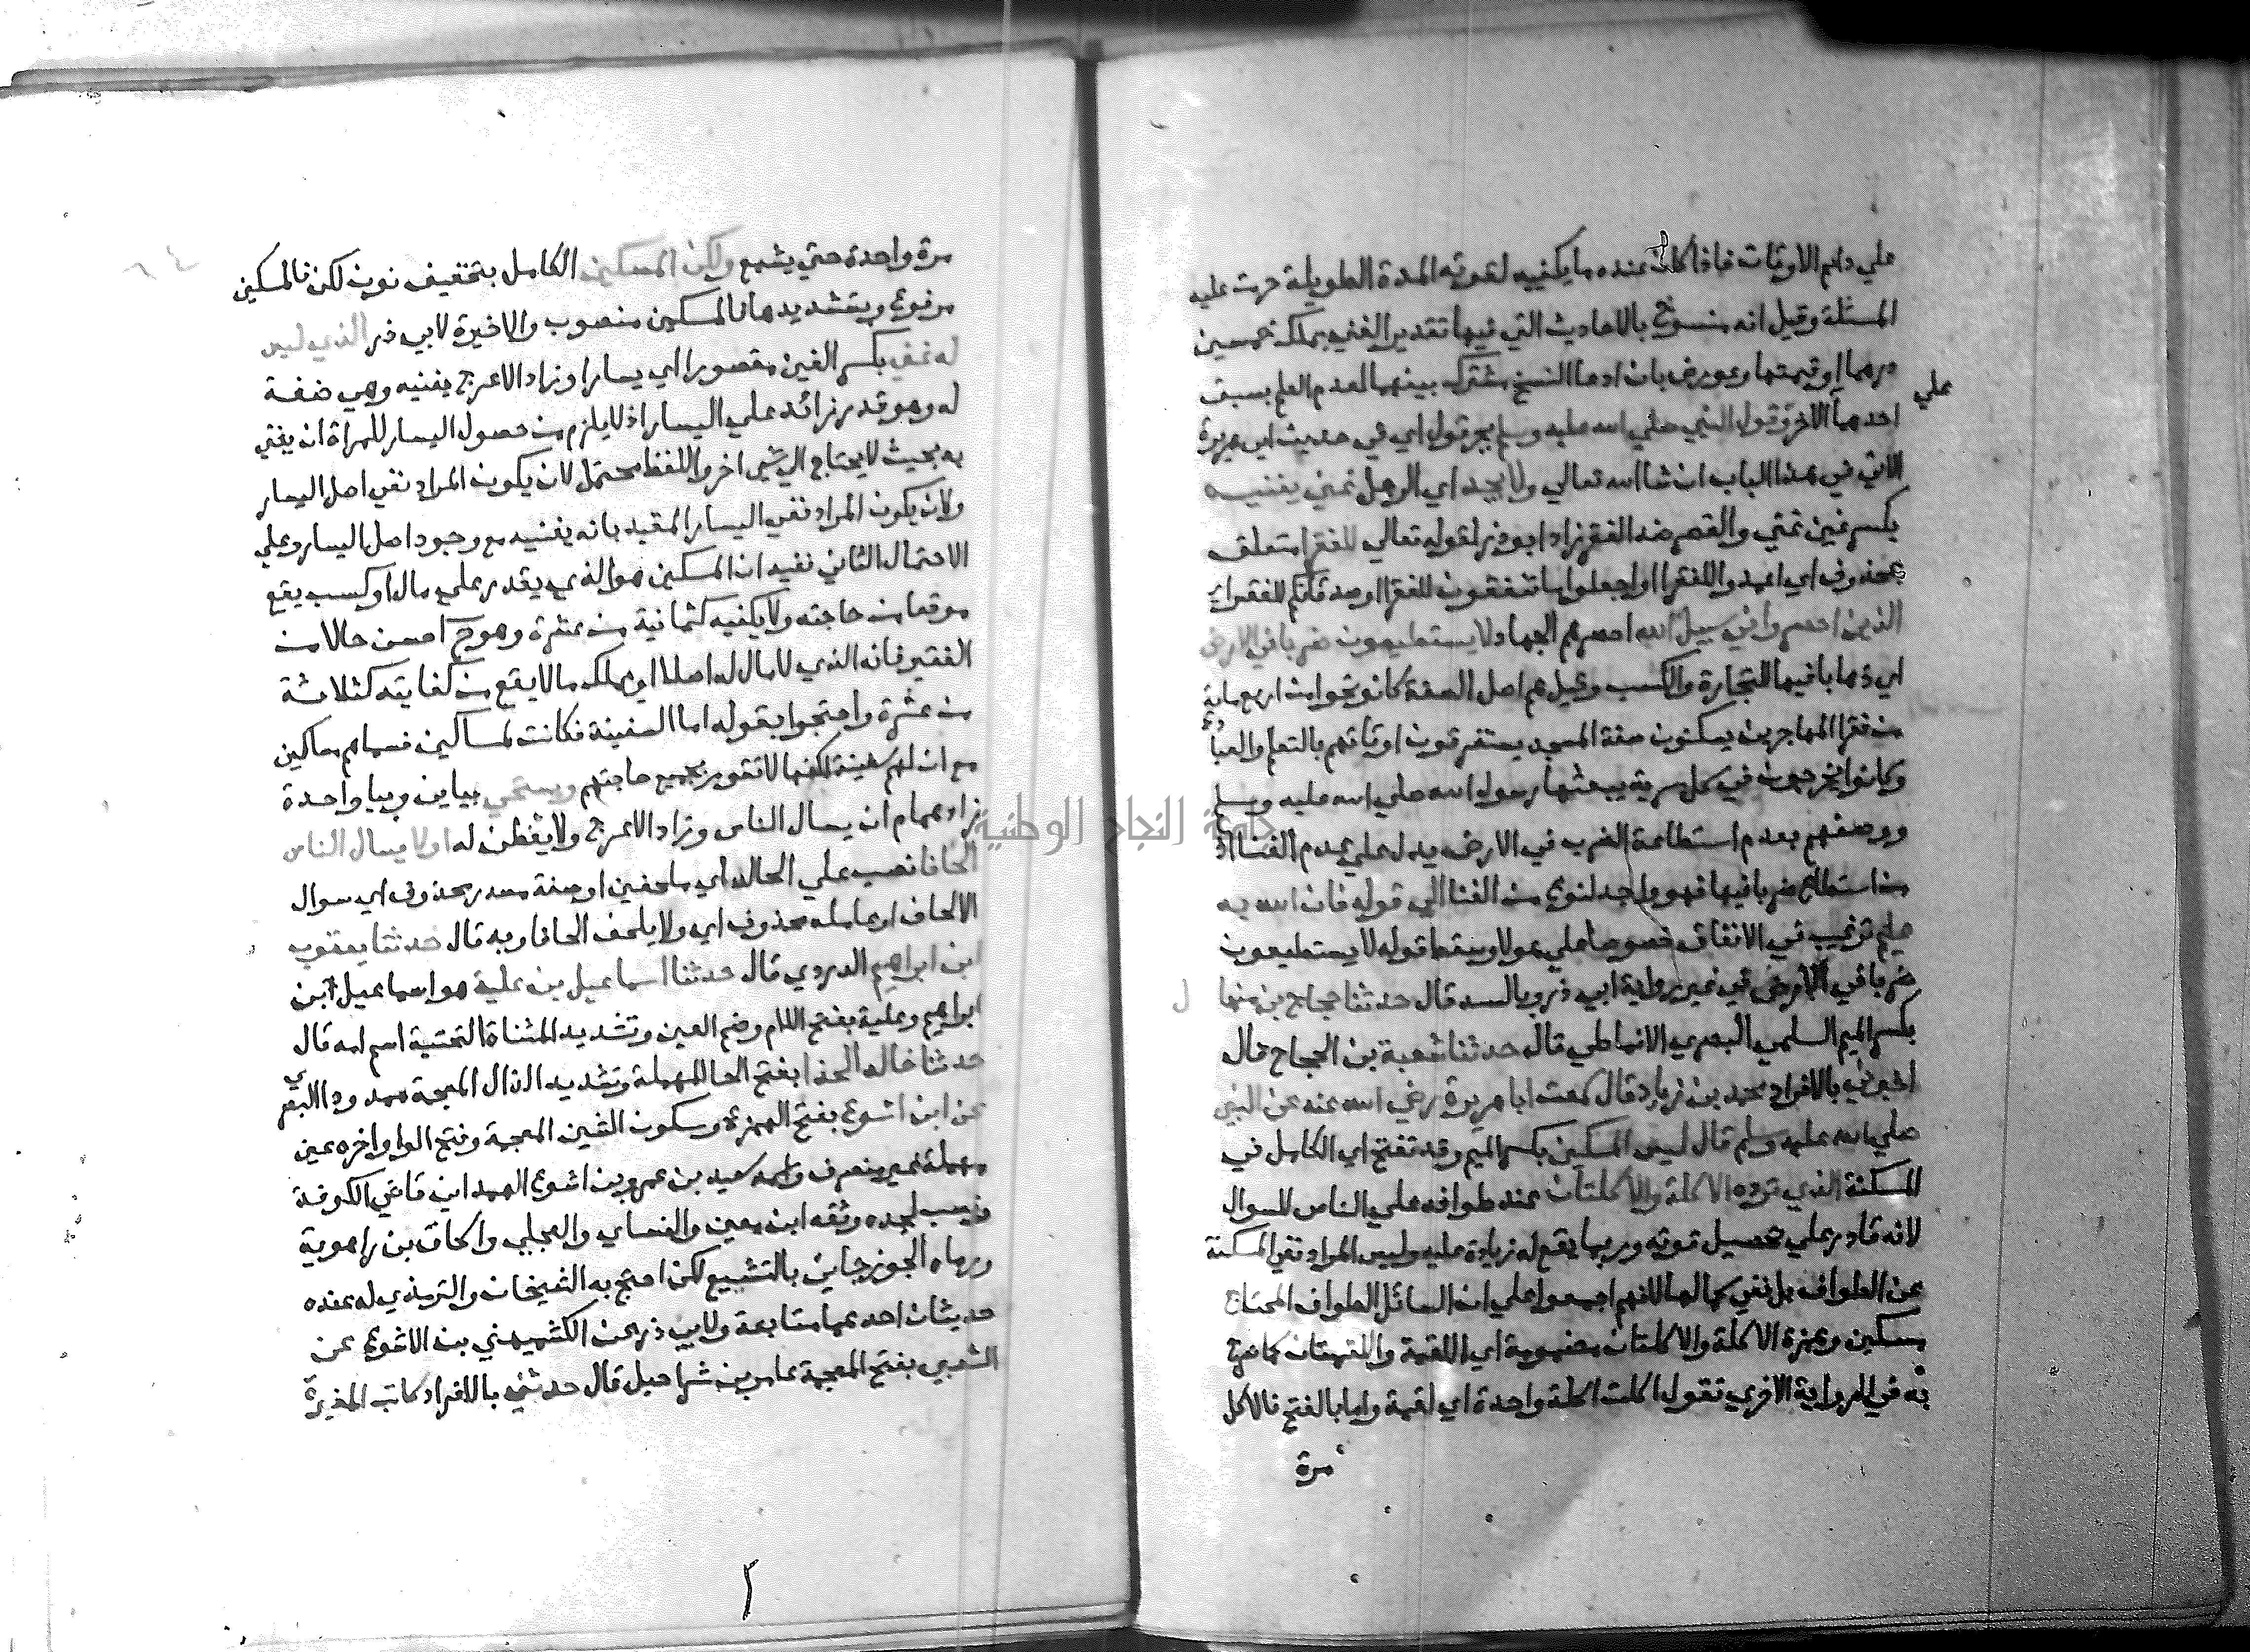 علي دايم الاوقات فاذا كان عنده ما يكفيه لقوته المدة الطويلة حرمت عليه
المسئلة وقيل انه منسوخ بالاحاديث التي فيها تقدير الغني بملك خمسين
درهما او قيمتها وعورض بان ادعا النسخ مشترك بينهما لعدم العلم بسبق
احدهما
علي
الاخر وقول النبي صلي الله عليه وسلم بجر قول اي في حديث ابي هريرة
الاتي في هذا الباب ان شا الله تعالي ولا يجد اي الرجل غني يغنيه
بكسر غين غني والقصر ضد الفقر زاد ابو ذر لقوله تعالي للفقرا متعلق
بمحذوف اي اعمدوا للفقرا او اجعلوا ما تنفقون للفقرا او صدقاتكم للفقراء
الذين احصروا في سبيل الله احصرهم الجهاد لا يستطيعون ضربا في الارض
اي ذهابا فيها للتجارة والكسب وقيل هم اهل الصفة كانوا نحوا من اربع ماية
من فقرا المهاجرين يسكنون صفة المسجد يستغرقون اوقاتهم بالتعلم والعبادة
وكانوا يخرجون في كل سرية يبعثها رسول الله صلي الله عليه وسلم
ووصفهم بعدم استطاعة الضرب في الارض يدل علي عدم الغنا اذ
من استطاع ضربا فيها فهو واجد لنوع من الغنا الي قوله فان الله به
عليم ترغيب في الانفاق خصوصا علي هولا وسقط قوله لا يستطيعون
ضربا في الارض في غير رواية ابي ذر وبالسند قال حدثنا حجاج بن منها ل
بكسر الميم السلمي البصري الانماطي قال حدثنا شعبة بن الحجاج قال
اخبرني بالافراد محمد بن زياد قال سمعت ابا هريرة رضي الله عنه عن النبي
صلي الله عليه وسلم قال ليس المسكين بكسر الميم وقد تفتح اي الكامل في
المسكنة الذي ترده الاكلة والاكلتان عند طوافه علي الناس للسوال
لانه قادر علي تحصيل قوته وربما يقع له زيادة عليه وليس المراد نفي المسكنة
عن الطواف بل نفي كمالها لانهم اجمعوا علي ان السائل الطواف المحتاج
مسكين وهمزة الاكلة والاكلتان مضمومة اي اللقمة واللقمتان كما صرح
به في الرواية الاخري تقول اكلت اكلة واحدة اي لقمة واما بالفتح فالاكل
مرة
مرة واحدة حتي يشبع ولكن المسكين الكامل بتخفيف نون لكن فالمسكين
مرفوع وبتشديدها فالمسكين منصوب والاخيرة لابي ذر الذي ليس
له غني بكسر الغين مقصورا اي يسارا وزاد الاعرج يغنيه وهي صفة
له وهو قدر زائد علي اليسار اذ لا يلزم من حصول اليسار للمراة ان يغني
به بحيث لا يحتاج الي شي اخر واللفظ محتمل لان يكون المراد نفي اصل اليسار
ولان يكون المراد نفي اليسار المقيد بانه يغنيه مع وجود اصل اليسار وعلي
الاحتمال الثاني نفيه ان المسكين هو الذي يقدر علي مال او كسب يقع
موقعا من حاجته ولا يكفيه كثمانية من عشرة وهو ح احسن حالا من
الفقير فانه الذي لا مال له اصلا او يملك ما لا يقع من كفايته كثلاثة
من عشرة واحتجوا بقوله اما السفينة فكانت لمساكين فسماهم مساكين
مع ان لهم سفينة لكنها لا تقوم بجميع حاجتهم ويستحي بيايين وبيا واحدة
زاد همام ان يسال الناس وزاد الاعرج ولا يفطن له او لا يسال الناس
الحافا نصب علي الحال اي ملحفين او صفة مصدر محذوف اي سوال
الالحاف او عامله محذوف اي ولا يلحف الحافا وبه قال حدثنا يعقوب
ابن ابراهيم الدورقي قال حدثنا اسماعيل بن علية هو اسماعيل ابن
ابراهيم وعلية بفتح اللام وضم العين وتشديد المثناة التحتية اسم امه قال
حدثنا خالد الحذا بفتح الحا المهملة وتشديد الذال المعجمة ممدودا البصري
عن ابن اشوع بفتح الهمزة وسكون الشين المعجمة وفتح الواو اخره عين
مهملة غير منصرف واسمه سعيد بن عمرو بن اشوع الهمداني قاضي الكوفة
ونسب لجده وثقه ابن معين والنساي والعجلي واسحاق بن راهوية
ورماه الجوزجاني بالتشيع لكن احتج به الشيخان والترمذي له عنده
حديثان احدهما متابعة ولابي ذر عن الكشميهني بن الاشوع عن
الشعبي بفتح المعجمة عامر بن شراحيل قال حدثني بالافراد كاتب المغيرة
جامعة النجاح الوطنية